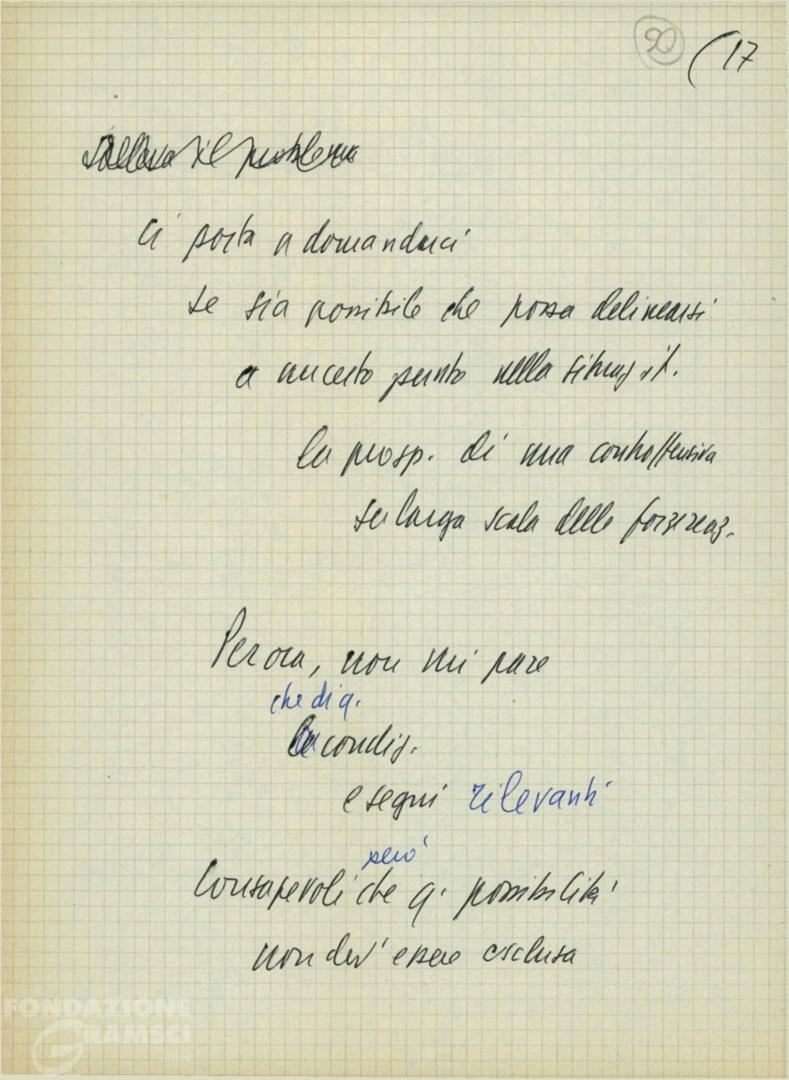 90 (17
solleva il problema
Ci porta a domandarci
se sia possibile che possa delinearsi
a un certo punto nella situaz. it.
la prosp. di una controffensiva
su larga scala delle forze reaz.
Per ora, non mi pare
che di q.
condiz.
e segni rilevanti
però
Consapevoli che q. possibilità
non dev' essere esclusa
FONDAZIONE
GRAMSCI